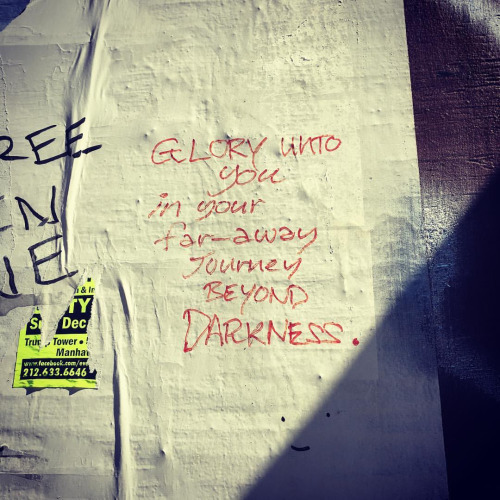 GLORY UNTO
you
in your
far-away
Journey
BEYOND
DARKNESS.
REE
EN
IE
& In
TY
Dec
Tower •
Manhat
www.facebook.com/eve
212.633.6646